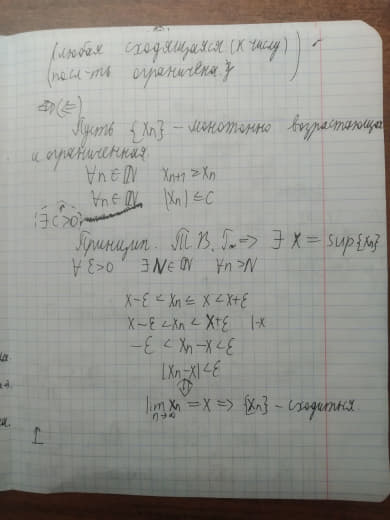 (любая сходящаяся (к числу)
(посл-ть ограничена.})
⇔ (⇐)
Пусть {Xn} - монотонно возрастающая
и ограниченная.
∀n∈ℕ Xn+1 ≥ Xn
∀n∈ℕ |Xn| ≤ C
∃C>0
Принцип. Т.В.Г. => ∃ X = sup{Xn}
∀ε>0 ∃N∈ℕ ∀n>N
X-ε < Xn ≤ X < X+ε
X-ε < Xn < X+ε |-X
-ε < Xn-X < ε
|Xn-X| < ε
lim Xn = X => {Xn} - сходиться.
n→∞